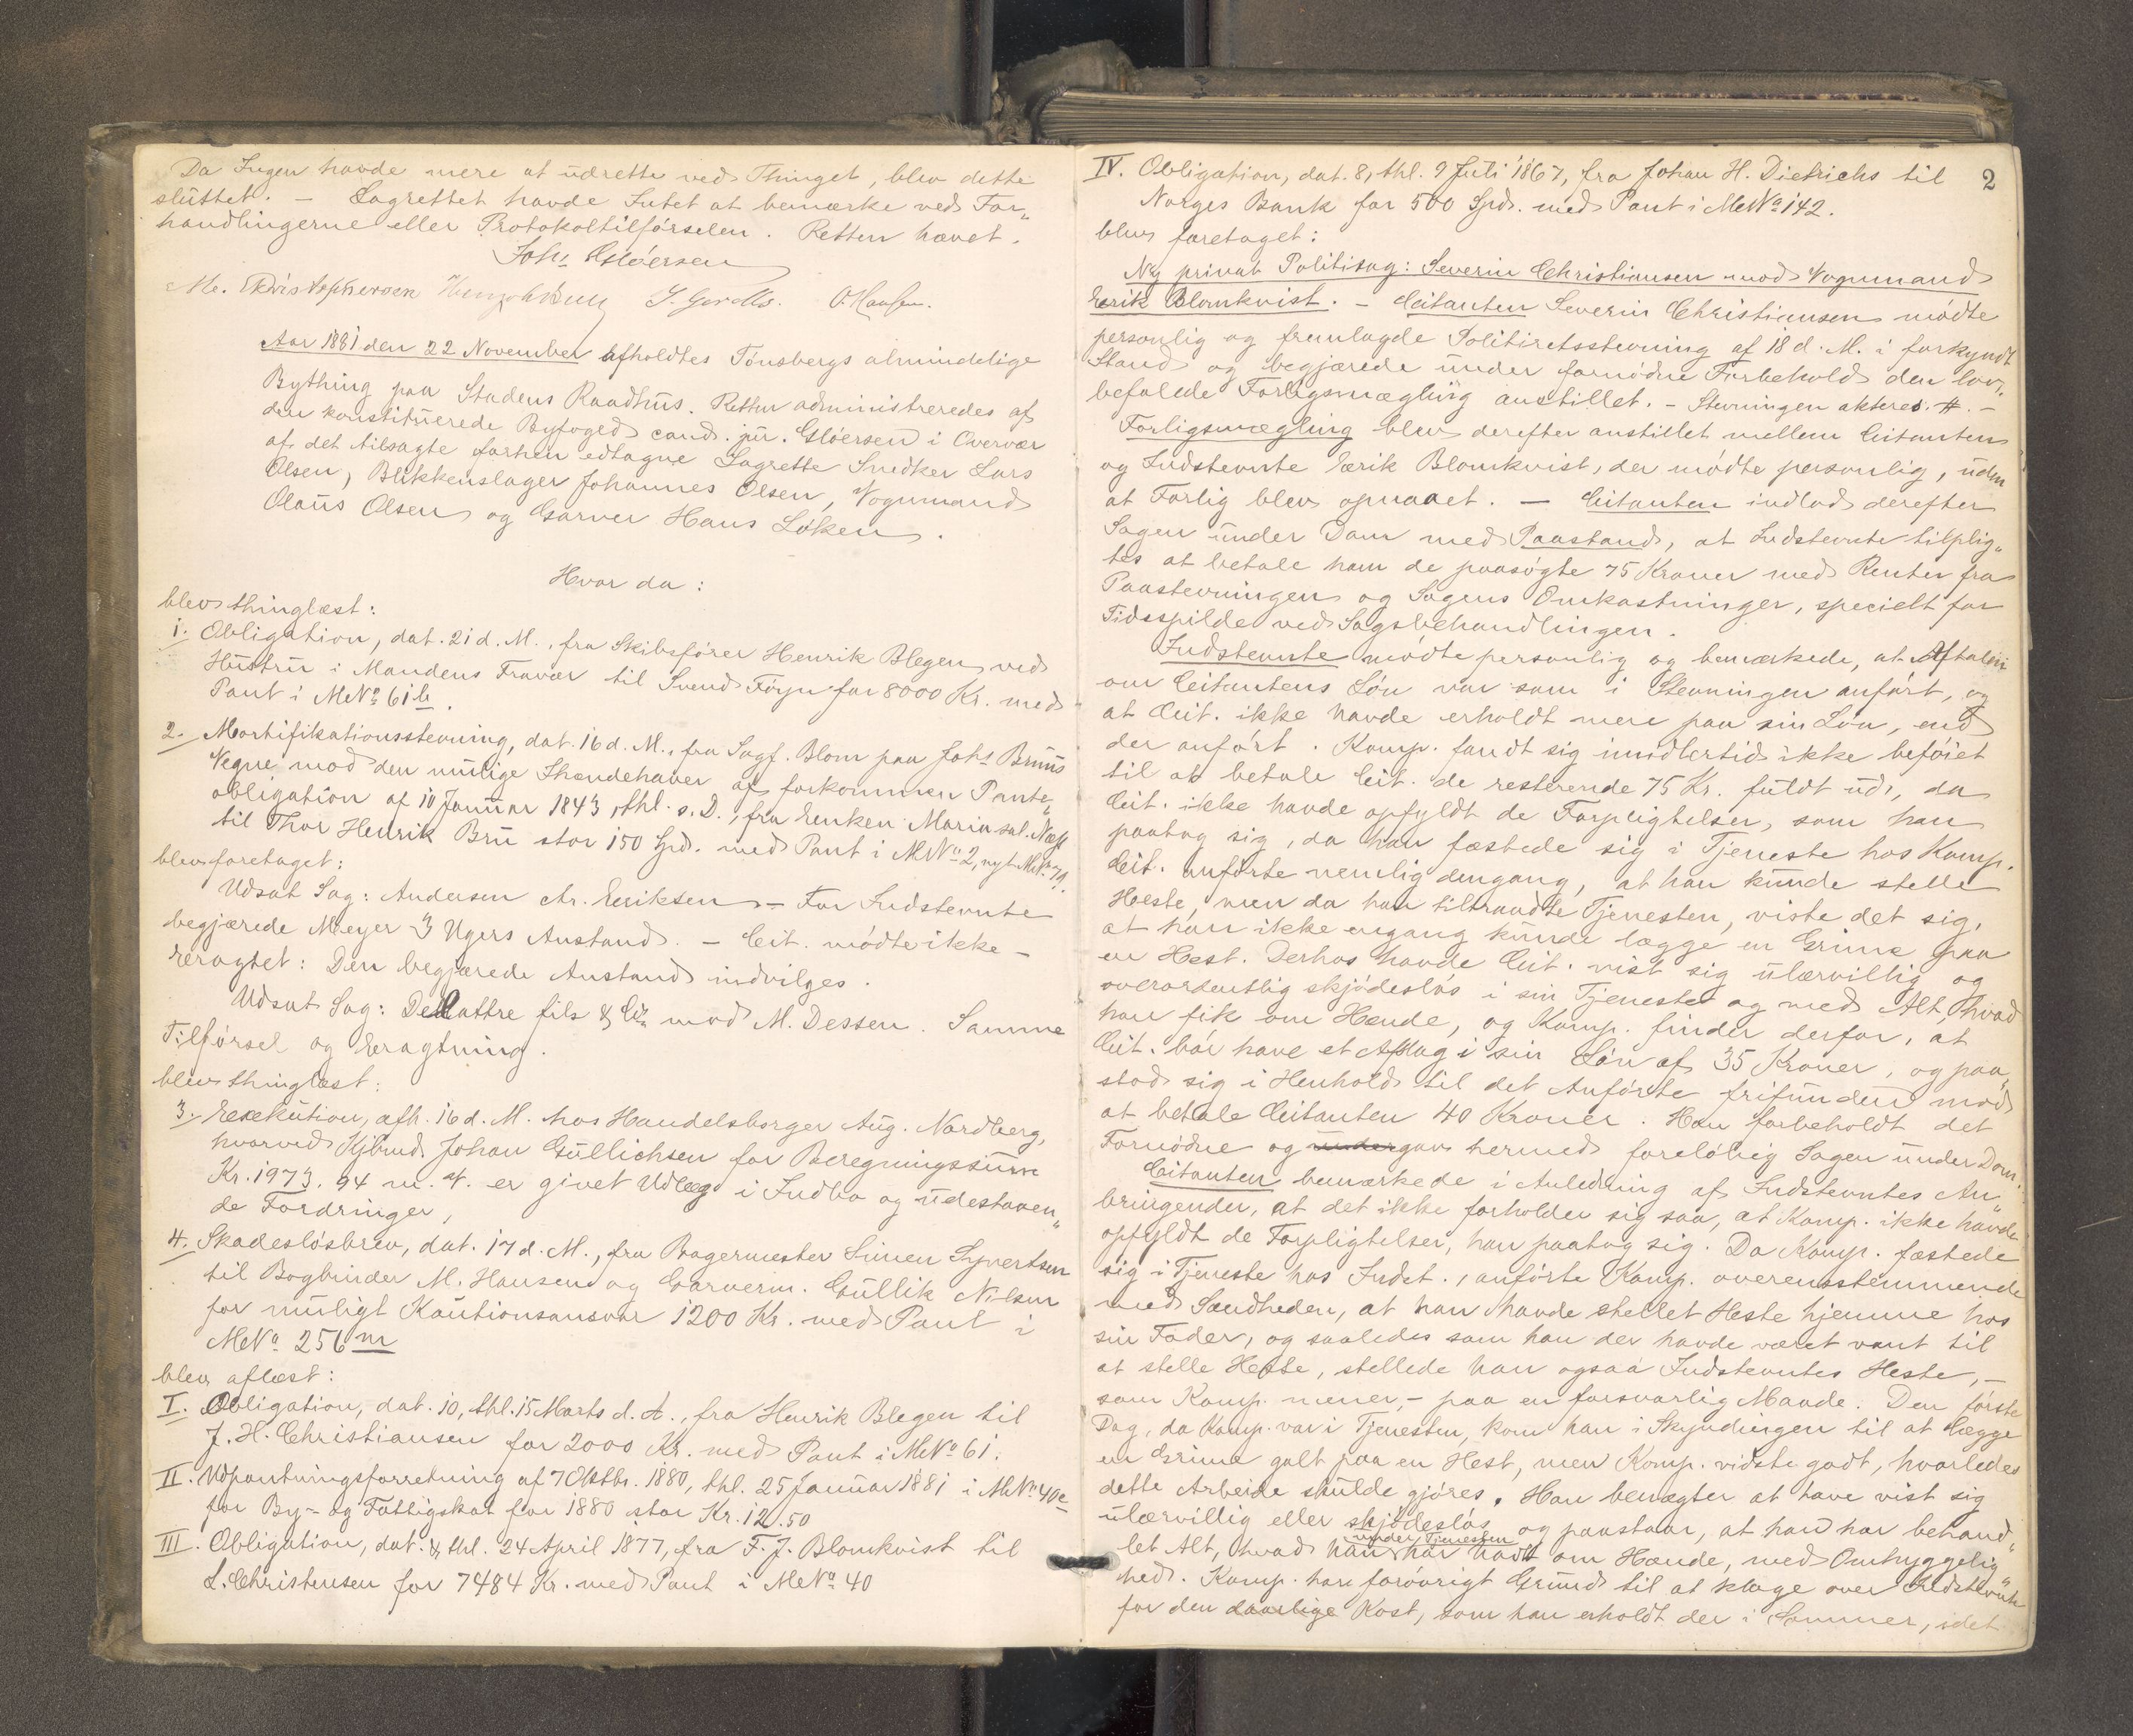 Da Ingen havde mere at udrette ved Thinget, blev dette
sluttet. — Lagrettet havde Intet at bemærke ved For„
handlingerne eller Protokoltilførselen. Retten hævet.
Johs Gløersen
O. Hansen.
Aar 1881 den 22 November afholdtes Tønsbergs almindelige
Bything paa Stadens Raadhus. Retten administreredes af
den konstituerede Byfoged cand. jur. Gløersen i Overvær
af det tilsagte forhen edtagne Lagrette Snedker Lars
Olsen, Blikkenslager Johannes Olsen, Vognmand
Olaus Olsen og Garver Hans Løken.
Hvor da:
blev thinglæst:
1. Obligation, dat. 21 d. M., fra Skibsfører Henrik Blegen ved
Hustru i Mandens Fravær til Svend Føyn for 8000 Kr. med
Pant i MNo 61 b.
2. Mortifikationsstevning, dat. 16 d. M., fra Sagf. Blom paa Johs Bruus
Vegne mod den mulige Ihændehaver af forkommen Pante„
obligation af 10 Januar 1843, thl. s. D., fra Enken Maria sal. Næss
til Thor Henrik Bru stor 150 Spd. med Pant i MNo 2, nyt MNo 79.
blev foretaget:
Udsat Sag: Andersen ctr. Eriksen. — For Indstevnte
begjærede Meyer 3 Ugers Anstand. — Cit. mødte ikke —
Eragtet: Den begjærede Anstand indvilges.
Udsat Sag: Delattre fils & Cie mod M. Dessen. Samme
Tilførsel og Eragtning.
blev thinglæst:
3. Exekution, afh. 16 d. M. hos Handelsborger Aug. Nordberg,
hvorved Kjbmd. Johan Gullichsen for Beregningssum
Kr. 1973.94 m. v. er givet Udlæg i Indbo og udestaaen„
de Fordringer,
4. Skadesløsbrev, dat. 17 d. M., fra Bagermester Simen Syvertsen
til Bogbinder M. Hansen og Garverm. Gullik Nilsen
for muligt Kautionsansvar 1200 Kr. med Pant i
MNo 256 m
blev aflæst:
I. Obligation, dat. 10, thl. 15 Marts d. A., fra Henrik Blegen til
J. H. Christiansen for 2000 Kr. med Pant i MNo 61.
II. Udpantningsforretning af 7 Oktbr. 1880, thl. 25 Januar 1881 i MNo 40 e
for By- og Fattigskat for 1880 stor Kr. 12.50
III. Obligation, dat. & thl. 24 April 1877, fra F. J. Blomkvist til
L. Christensen for 7484 Kr. med Pant i MNo 40
2
IV. Obligation, dat. 8, thl. 9 Juli 1867, fra Johan H. Dietrichs til
Norges Bank for 500 Spd. med Pant i MNo 142.
blev foretaget:
Ny privat Politisag: Severin Christiansen mod Vognmand
Erik Blomkvist. — Citanten Severin Christiansen mødte
personlig og fremlagde Politiretsstevning af 18 d. M. i forkyndt
Stand og begjærede under fornødne Forbehold den lov„
befalede Forligsmægling anstillet. — Stevningen akteres. #. —
Forligsmægling blev derefter anstillet mellem Citanten
og Indstevnte Erik Blomkvist, der mødte personlig, uden
at Forlig blev opnaaet. — Citanten indlod derefter
Sagen under Dom med Paastand, at Indstevnte tilplig„
tes at betale ham de paasøgte 75 Kroner med Renter fra
Paastevningen og Sagens Omkostninger, specielt for
Tidsspilde ved Sagsbehandlingen.
Indstevnte mødte personlig og bemærkede, at Aftalen
om Citantens Løn var som i Stevningen anført, og
at Cit. ikke havde erholdt mere paa sin Løn, end
der anført. Komp. fandt sig imidlertid ikke beføiet
til at betale Cit. de resterende 75 Kr. fuldt ud, da
Cit. ikke havde opfyldt de Forpligtelser, som han
paatog sig, da han fæstede sig i Tjeneste hos Komp.
Cit. anførte nemlig dengang, at han kunde stelle
Heste, men da han tiltraadte Tjenesten, viste det sig,
at han ikke engang kunde lægge en Grime paa
en Hest. Derhos havde Cit. vist sig ulærvillig og
overordentlig skjødesløs i sin Tjeneste og med Alt, hvad
han fik om Hænde, og Komp. finder derfor, at
Cit. bør have et Afslag i sin Løn af 35 Kroner, og paa„
stod sig i Henhold til det Anførte frifunden mod
at betale Citanten 40 Kroner. Han forbeholdt det
Fornødne og under gav hermed foreløbig Sagen under Dom.
Citanten bemærkede i Anledning af Indstevntes An„
bringender, at det ikke forholder sig saa, at Komp. ikke havde
opfyldt de Forpligtelser, han paatog sig. Da Komp. fæstede
sig i Tjeneste hos Indst., anførte Komp. overensstemmende
med Sandheden, at han havde stellet Heste hjemme hos
sin Fader, og saaledes som han der havde været vant til
at stelle Heste, stellede han ogsaa Indstevntes Heste, —
som Komp. mener, — paa en forsvarlig Maade. Den første
Dag, da Komp. var i Tjenesten, kom han i Skyndingen til at lægge
en Grime galt paa en Hest, men Komp. vidste godt, hvorledes
dette Arbeide skulde gjøres. Han benægter at have vist sig
ulærvillig eller skjødesløs og paastaar, at han har behand„
under Tjenesten
let Alt, hvad han har havt om Hænde, med Omhyggelig„
hed. Komp. har forøvrigt Grund til at klage over Indstevnte
for den daarlige Kost, som han erholdt der i Sommer, idet